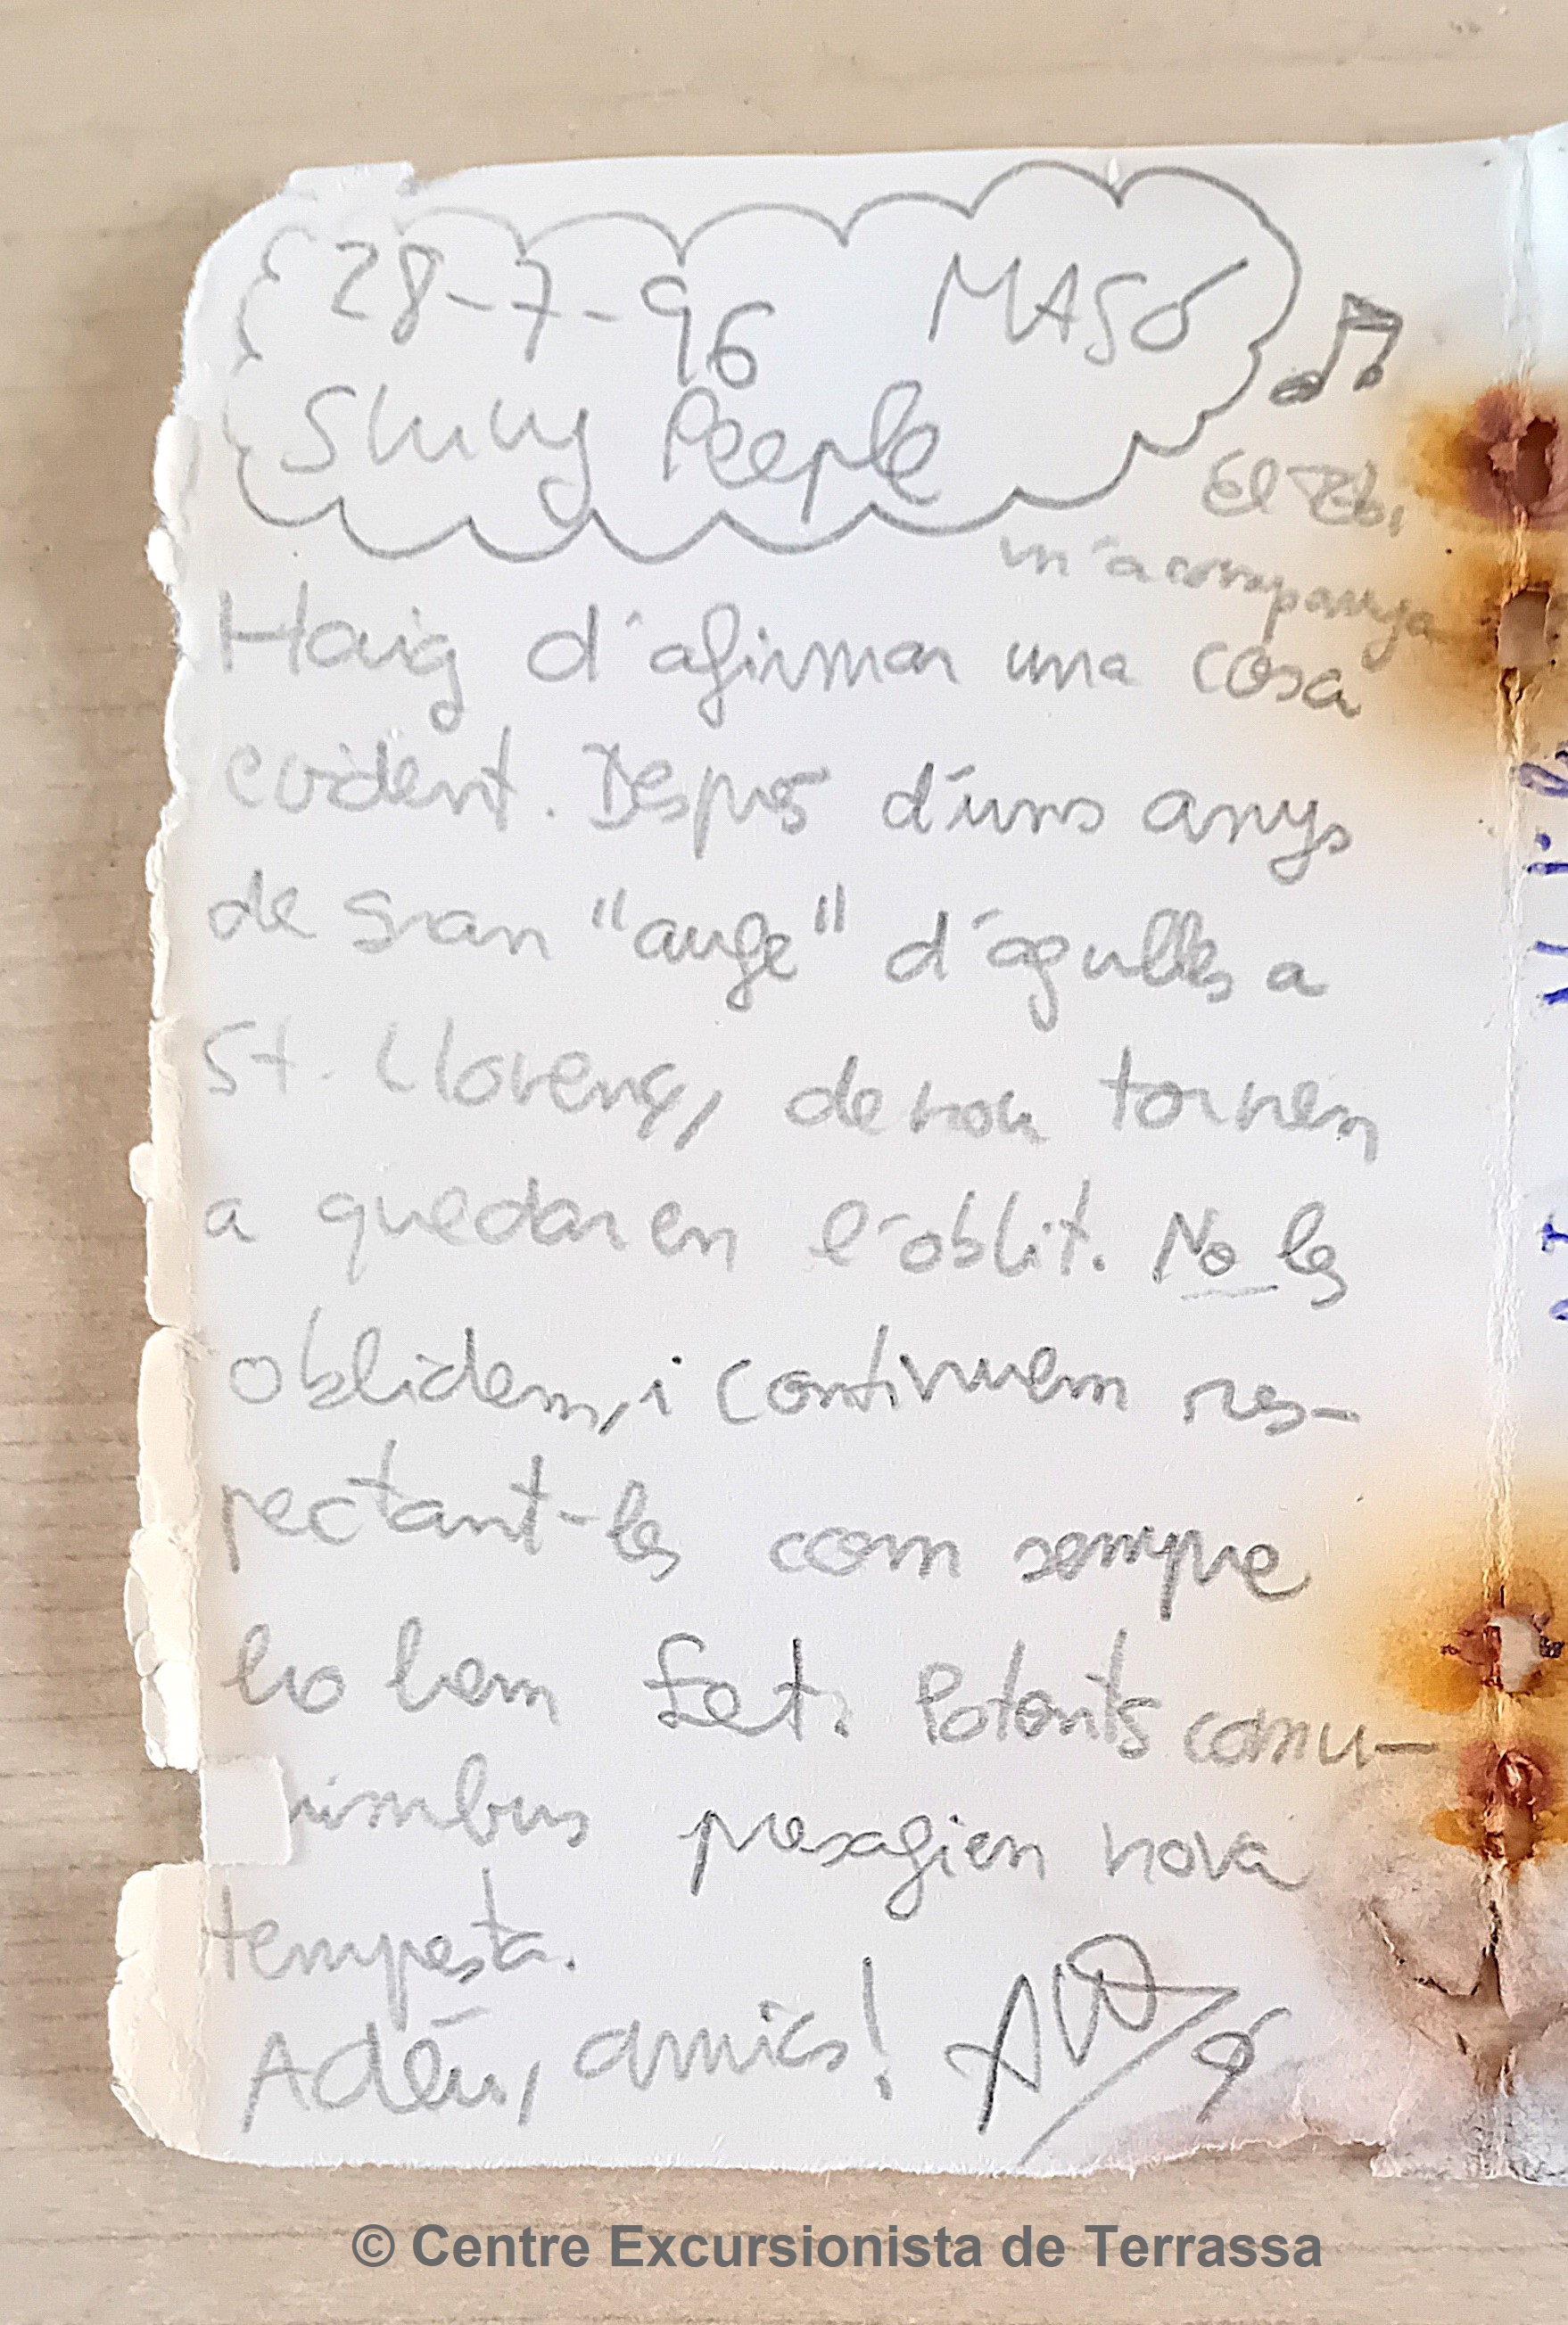 28-7-96 MASÓ
Shiny People
El
m'acompanya
Haig d'afirmar una cosa
evident. Després d'uns anys
de gran "auge" d'agulles a
St. Llorenç, de nou tornen
a quedar en l'oblit. No les
oblidem, i continuem res-
pectant-les com sempre
ho hem fet. Potents comu-
nimbus presagien nova
tempesta.
Adéu, amics!
© Centre Excursionista de Terrassa